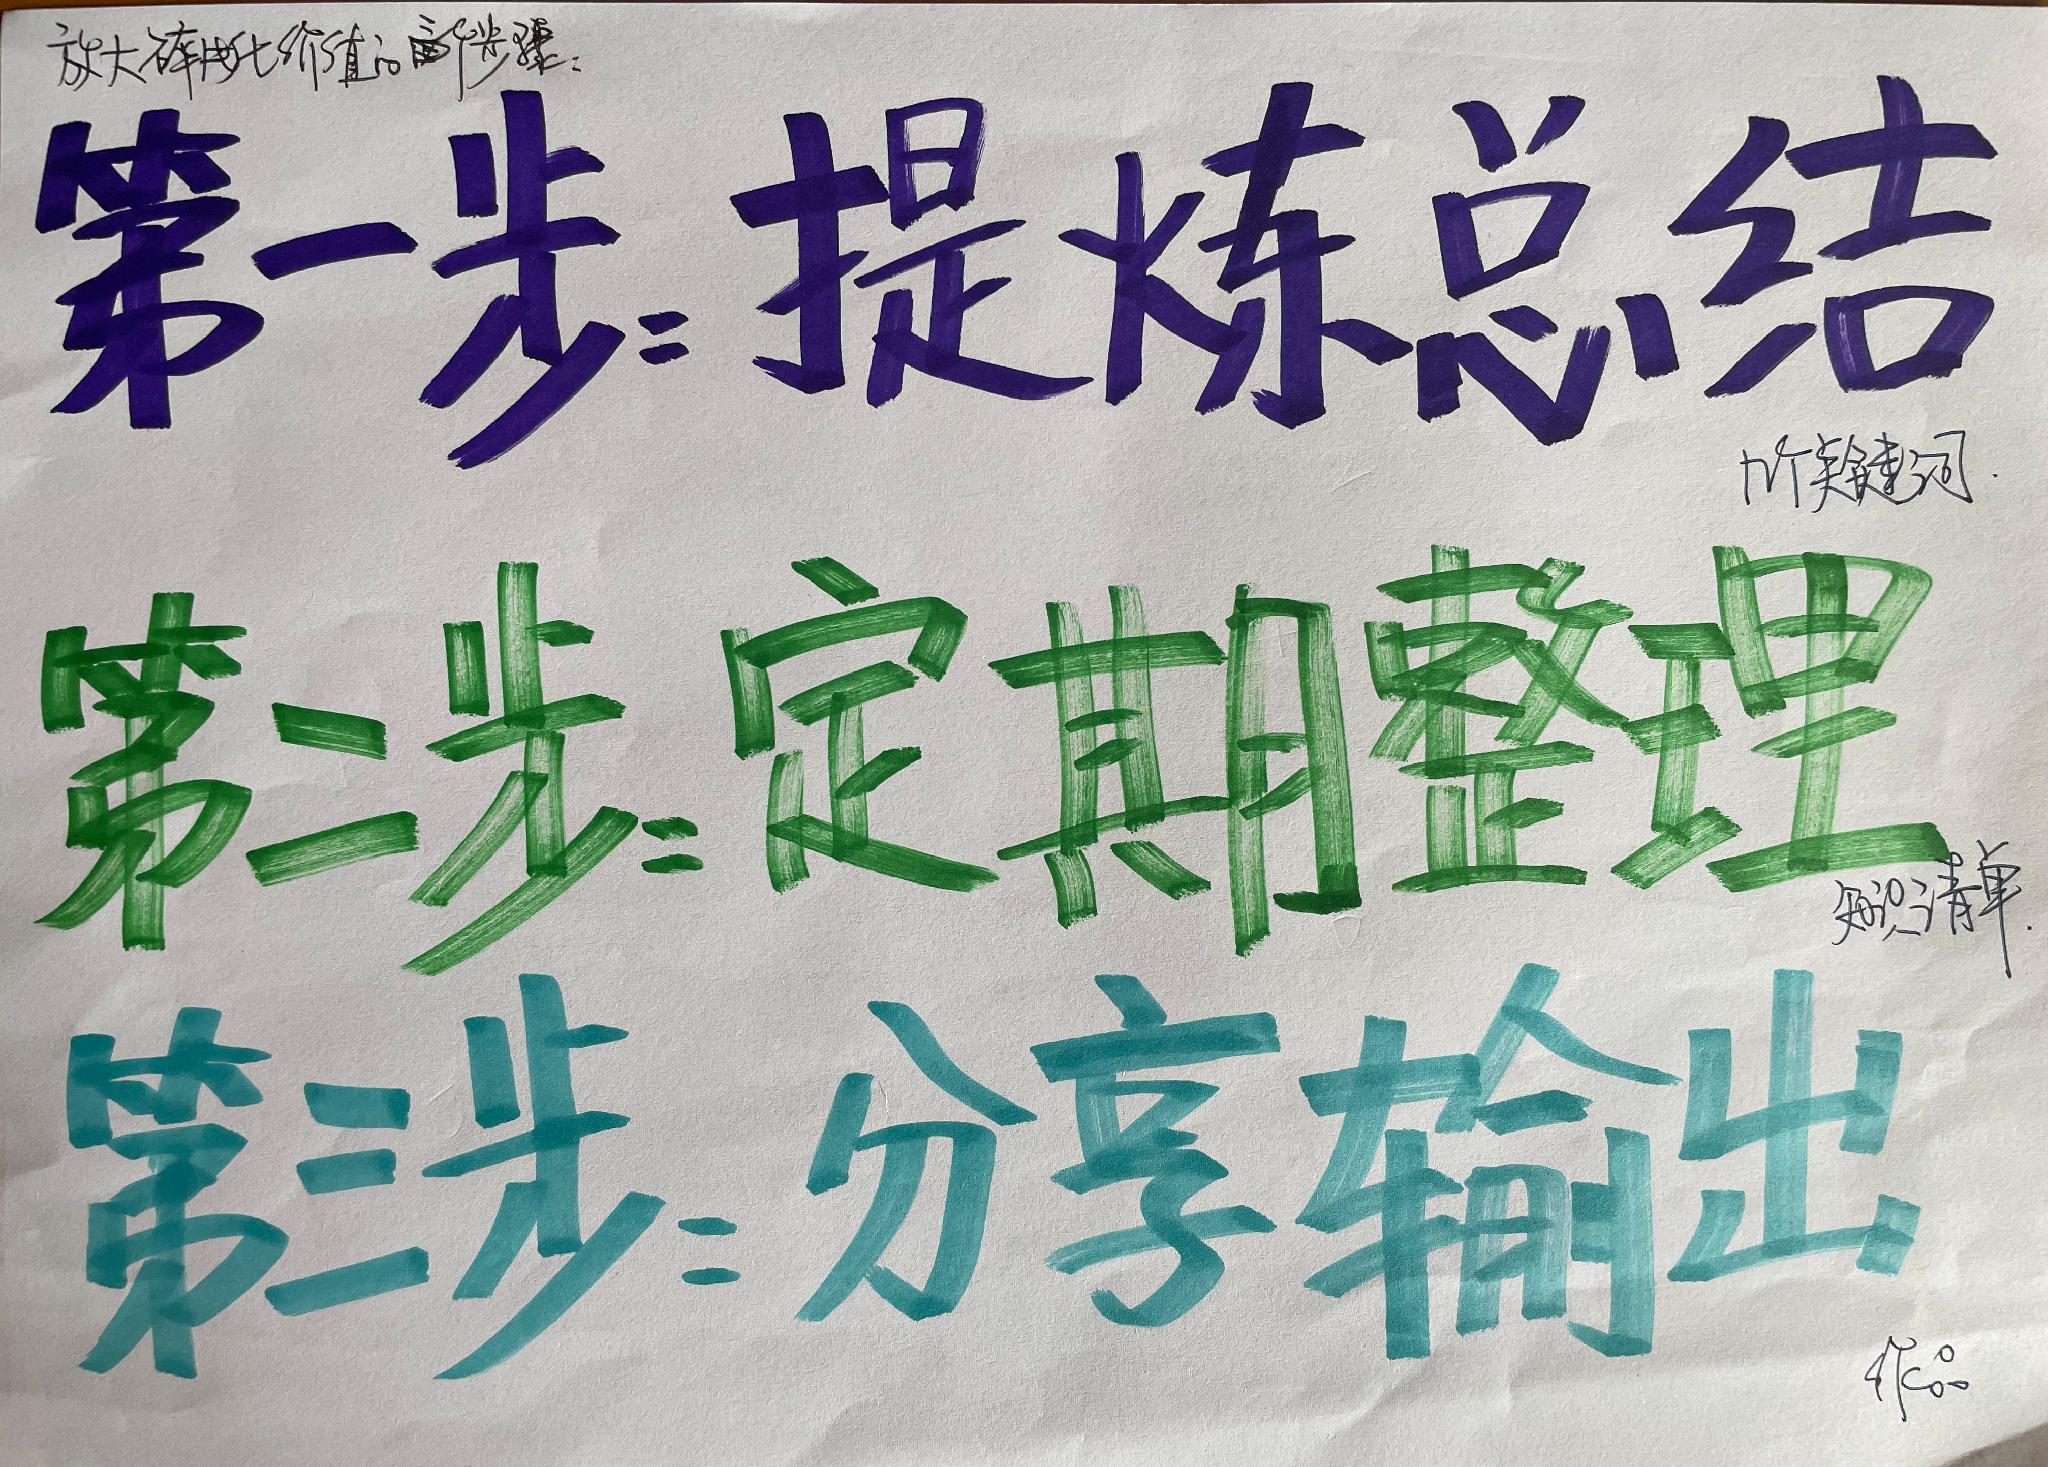 放大碎片化价值的三个步骤：
第一步：提炼总结
个关键词.
第二步：定期整理
知识清单.
第三步：分享输出
作品